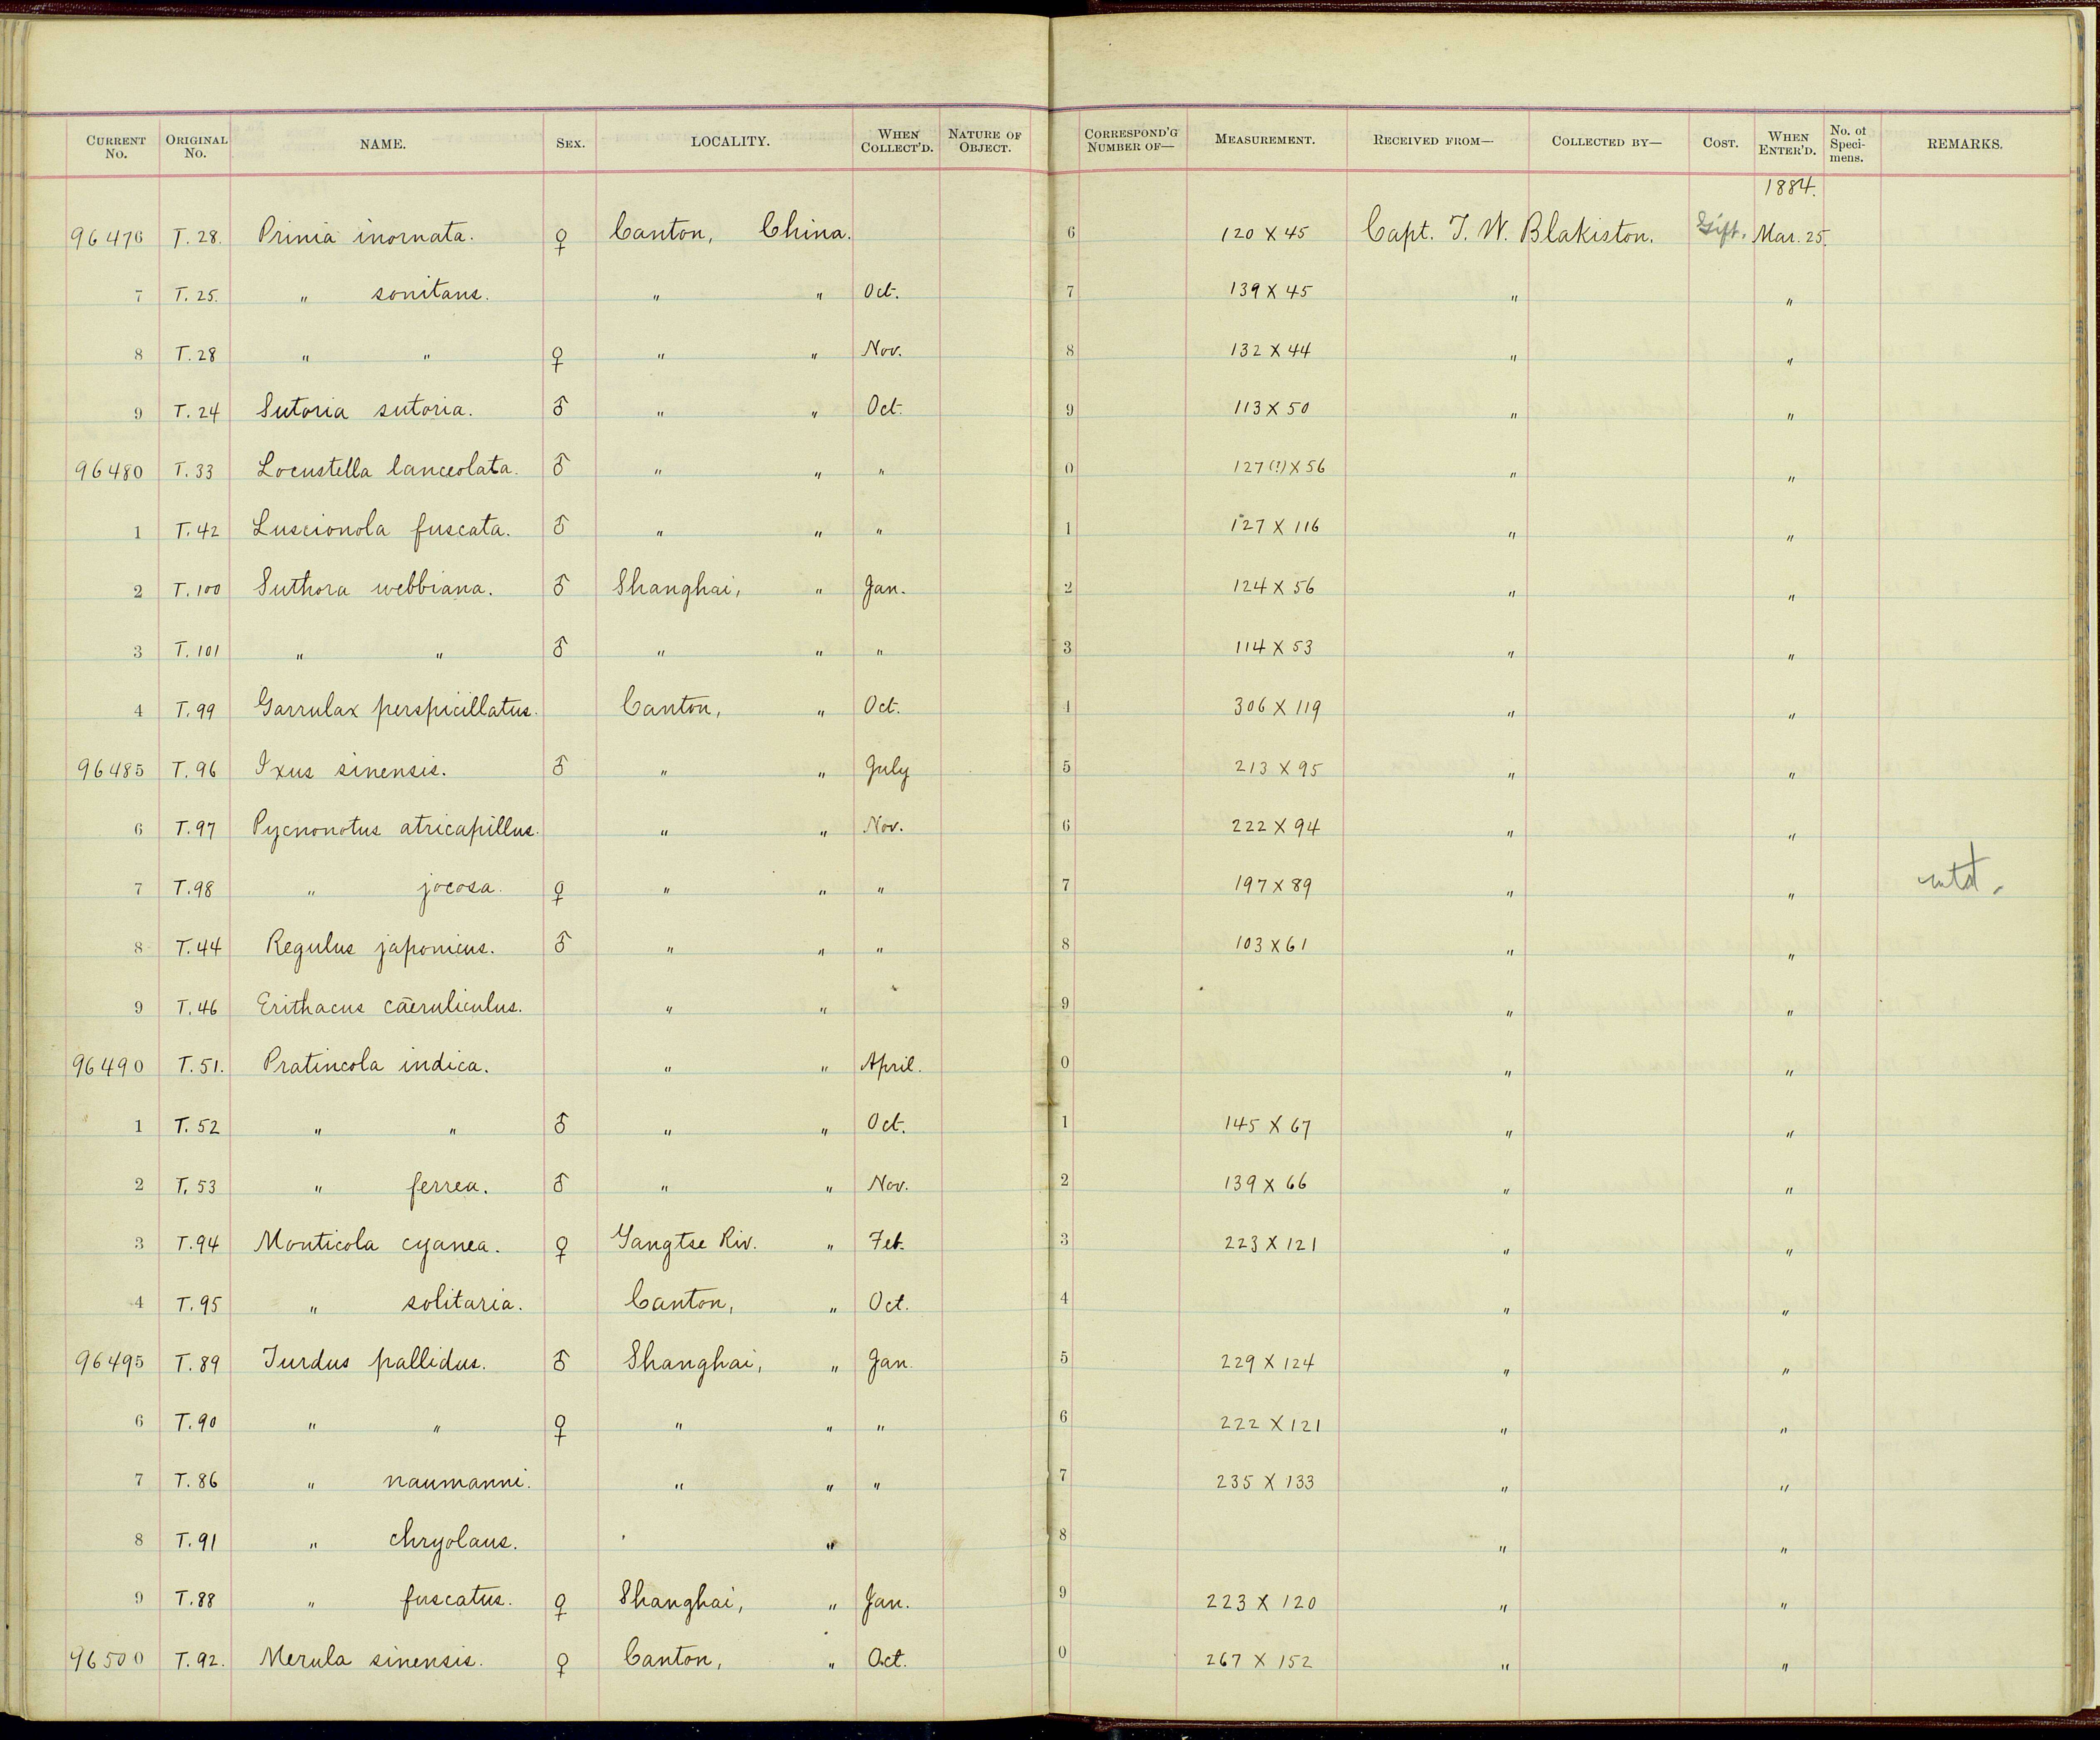 CURRENT No. ORIGINAL No. NAME. SEX. LOCALITY. WHEN COLLECT'D. NATURE OF OBJECT. CORRESPOND'G NUMBER OF— MEASUREMENT. RECEIVED FROM— COLLECTED BY— COST. WHEN ENTER'D. No. of Speci-mens. REMARKS.
1884.
96476 T.28. Prinia inornata. ♀ Canton, China. 6 120 X 45 Capt. T. W. Blakiston. Gift. Mar. 25.
7 T.25. " sonitans. " " Oct. 7 139 X 45 " "
8 T.28 " " ♀ " " Nov. 8 132 X 44 " "
9 T.24 Sutoria sutoria. ♂ " " Oct. 9 113 X 50 " "
96480 T.33 Locustella lanceolata. ♂ " " " 0 127(?) X 56 " "
1 T.42 Luscionola fuscata. ♂ " " " 1 127 X 116 " "
2 T.100 Suthora webbiana. ♂ Shanghai, " Jan. 2 124 X 56 " "
3 T.101 " " ♂ " " " 3 114 X 53 " "
4 T.99 Garrulax perspicillatus. Canton, " Oct. 4 306 X 119 " "
96485 T.96 Ixus sinensis. ♂ " " July 5 213 X 95 " "
6 T.97 Pycnonotus atricapillus. " " Nov. 6 222 X 94 " "
7 T.98 " jocosa. ♀ " " " 7 197 X 89 " "
8 T.44 Regulus japonicus. ♂ " " " 8 103 X 61 " "
9 T.46 Erithacus cæruliculus. " " 9 " "
96490 T.51. Pratincola indica. " " April. 0 " "
1 T.52 " " ♂ " " Oct. 1 145 X 67 " "
2 T.53 " ferrea. ♂ " " Nov. 2 139 X 66 " "
3 T.94 Monticola cyanea. ♀ Yangtse Riv. " Feb. 3 223 X 121 " "
4 T.95 " solitaria. Canton, " Oct. 4 " "
96495 T.89 Turdus pallidus. ♂ Shanghai, " Jan. 5 229 X 124 " "
6 T.90 " " ♀ " " " 6 222 X 121 " "
7 T.86 " naumanni. " " " 7 235 X 133 " "
8 T.91 " chryolaus. " 8 " "
9 T.88 " fuscatus. ♀ Shanghai, " Jan. 9 223 X 120 " "
96500 T.92. Merula sinensis. ♀ Canton, " Oct. 0 267 X 152 " "